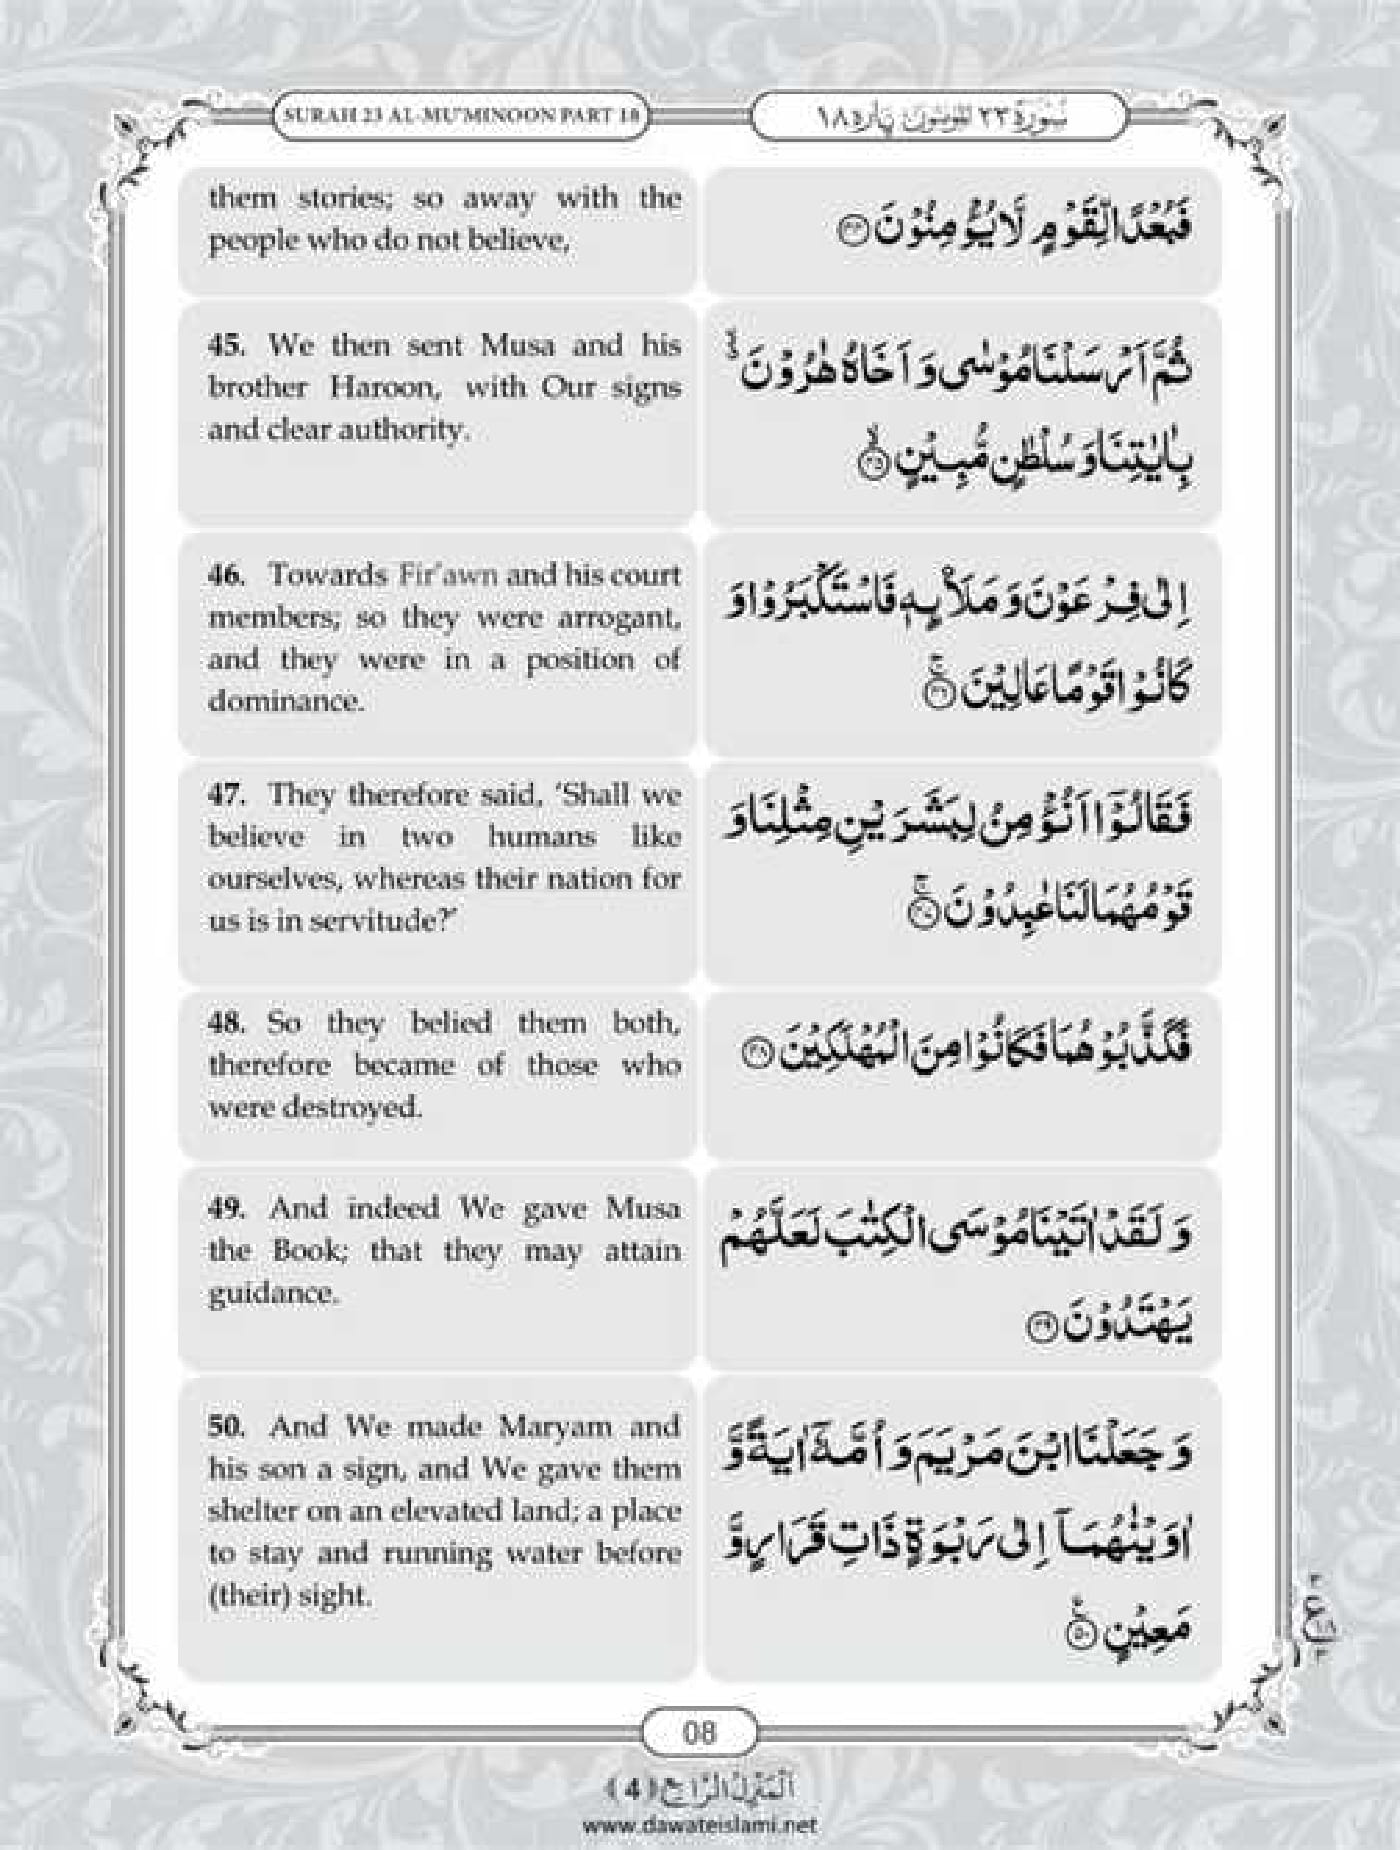 SURAH 23 AL-MU'MINOON PART 18
سُوْرَةُ ٢٣ الْمُؤْمِنُوْنَ پاره ١٨
them stories; so away with the
people who do not believe,
فَبُعْدًا لِّقَوْمٍ لَّا يُؤْمِنُوْنَ ﴿۴۴﴾
45. We then sent Musa and his
brother Haroon, with Our signs
and clear authority.
ثُمَّ اَرْسَلْنَا مُوْسٰى وَ اَخَاهُ هٰرُوْنَ ۬ۙ
بِاٰيٰتِنَا وَ سُلْطٰنٍ مُّبِيْنٍ ﴿ۙ۴۵﴾
46. Towards Fir'awn and his court
members; so they were arrogant,
and they were in a position of
dominance.
اِلٰى فِرْعَوْنَ وَ مَلَا۟ىِٕهٖ فَاسْتَكْبَرُوْا وَ
كَانُوْا قَوْمًا عَالِيْنَ ﴿ۚ۴۶﴾
47. They therefore said, ‘Shall we
believe in two humans like
ourselves, whereas their nation for
us is in servitude?’
فَقَالُوْۤا اَنُؤْمِنُ لِبَشَرَيْنِ مِثْلِنَا وَ
قَوْمُهُمَا لَنَا عٰبِدُوْنَ ﴿ۚ۴۷﴾
48. So they belied them both,
therefore became of those who
were destroyed.
فَكَذَّبُوْهُمَا فَكَانُوْا مِنَ الْمُهْلَكِيْنَ ﴿۴۸﴾
49. And indeed We gave Musa
the Book; that they may attain
guidance.
وَ لَقَدْ اٰتَيْنَا مُوْسَى الْكِتٰبَ لَعَلَّهُمْ
يَهْتَدُوْنَ ﴿۴۹﴾
50. And We made Maryam and
his son a sign, and We gave them
shelter on an elevated land; a place
to stay and running water before
(their) sight.
وَ جَعَلْنَا ابْنَ مَرْيَمَ وَ اُمَّهٗۤ اٰيَةً وَّ
اٰوَيْنٰهُمَاۤ اِلٰى رَبْوَةٍ ذَاتِ قَرَارٍ وَّ
مَعِيْنٍ ﴿۠۵۰﴾
ع
١٨
08
اَلْمَنْزِلُ الرَّابِعُ (4)
www.dawateislami.net